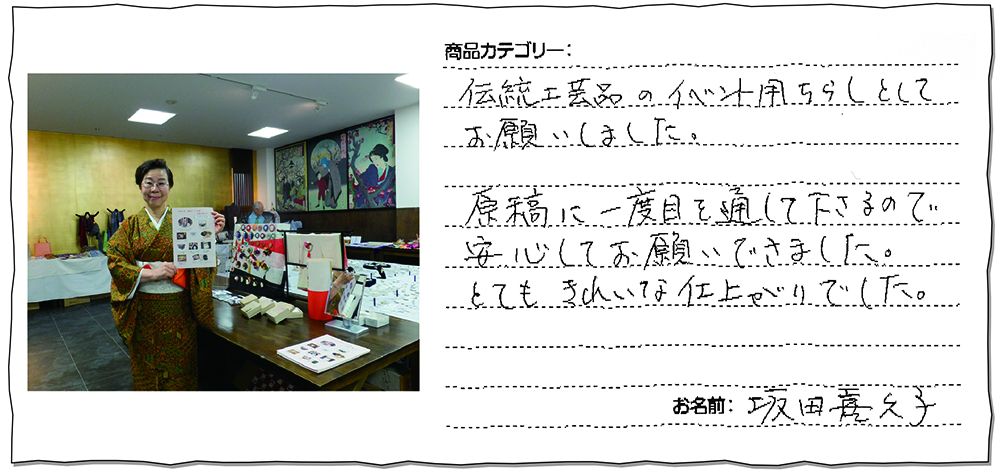 商品カテゴリー：
伝統工芸品のイベント用ちらしとして
お願いしました。
原稿に一度目を通して下さるので
安心してお願いできました。
とてもきれいな仕上がりでした。
お名前： 坂田喜久子